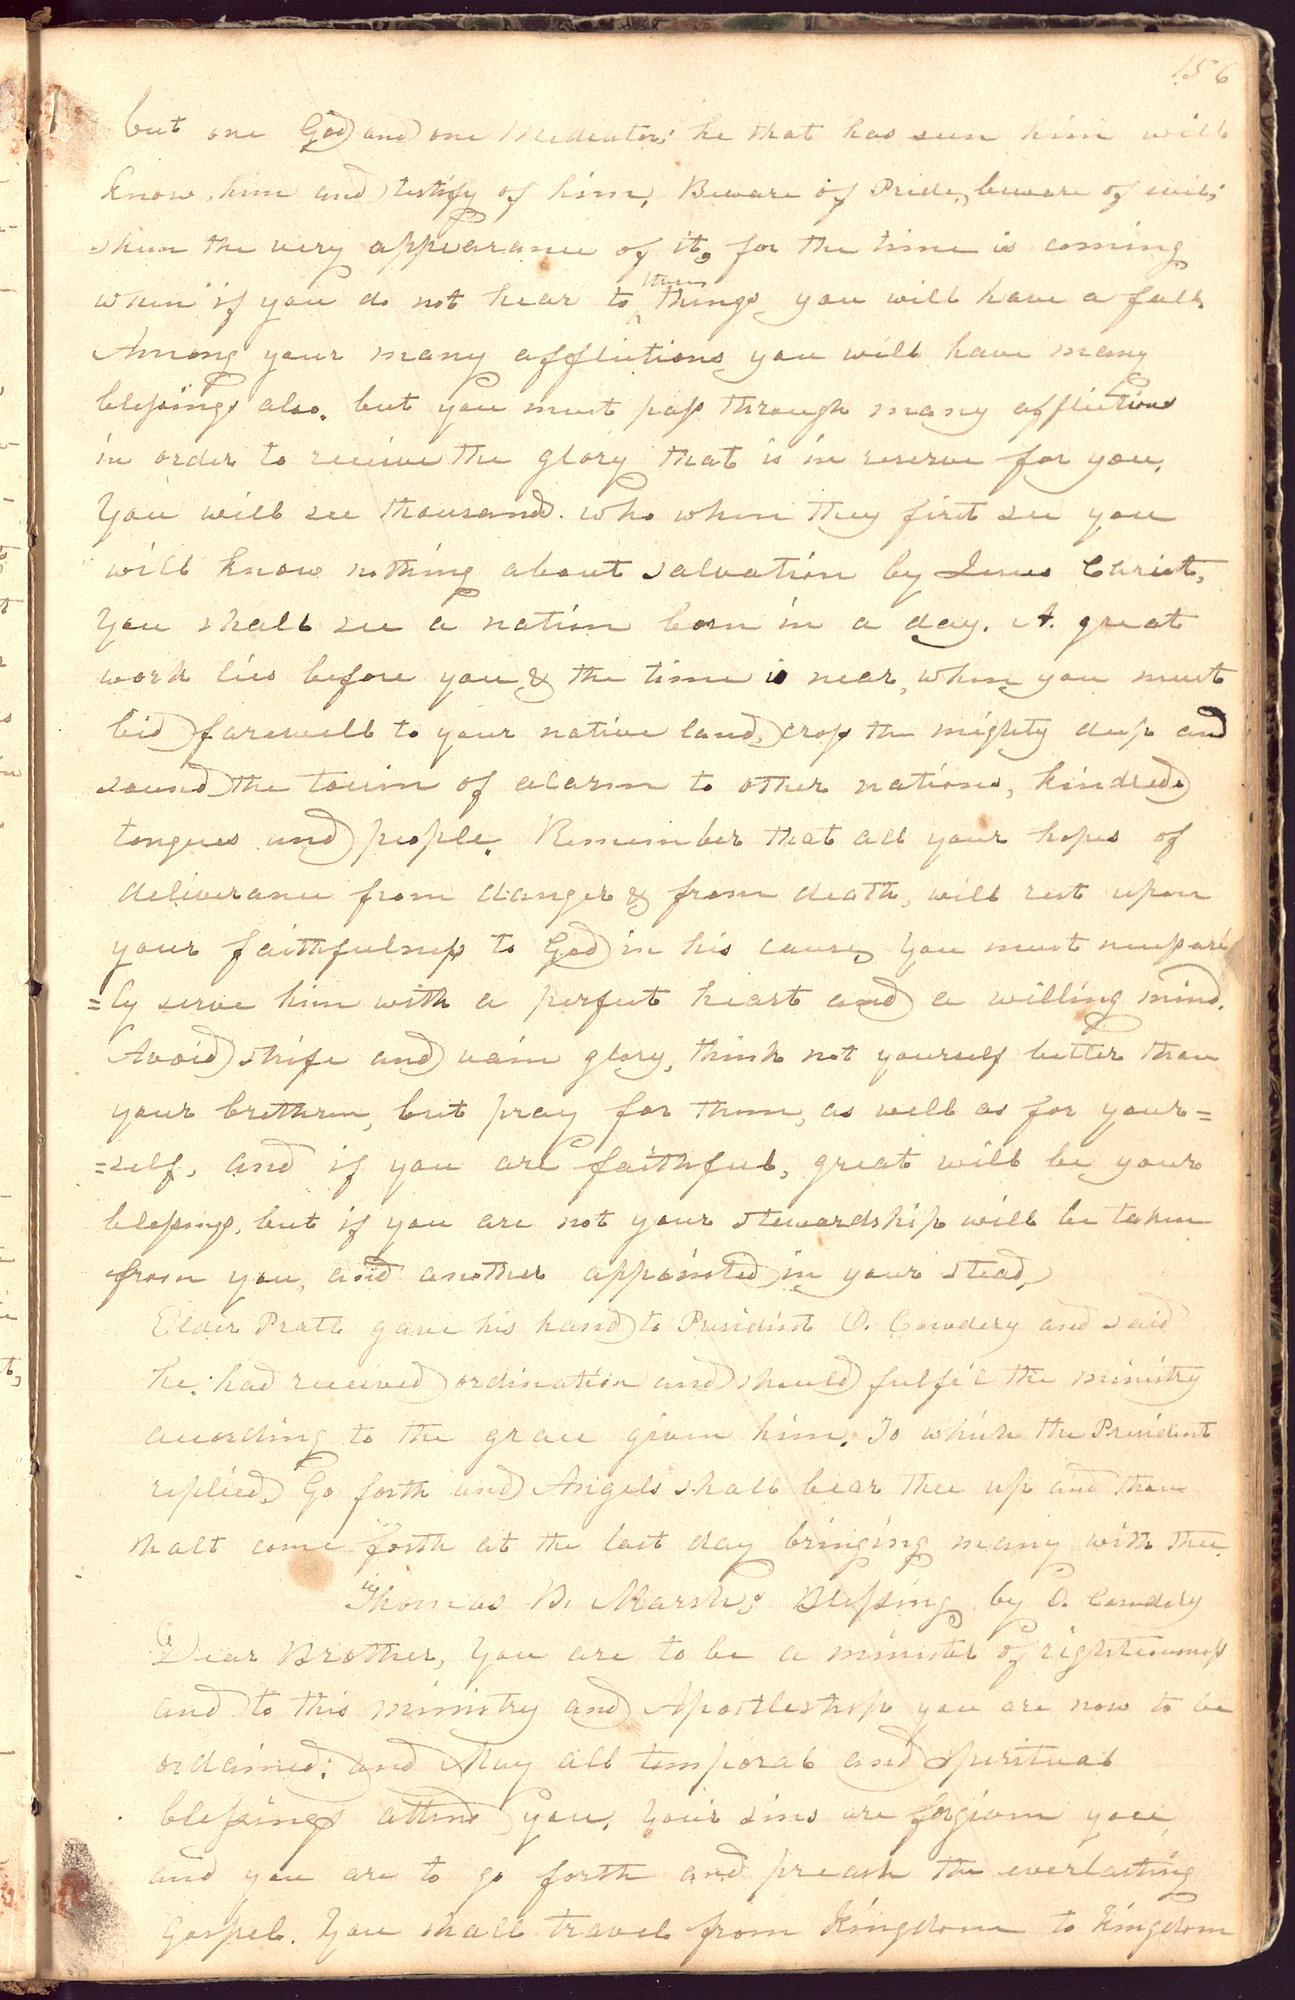 156
but one God and one Mediator; he that has seen him will
know him and testify of him. Beware of Pride, beware of evil;
shun the very appearance of it, for the time is coming
when if you do not hear to these things you will have a fall.
Among your many afflictions you will have many
blessings also. but you must pass through many afflictions
in order to receive the glory that is in reserve for you.
You will see thousands who when they first see you
will know nothing about salvation by Jesus Christ,
you shall see a nation born in a day. A great
work lies before you & the time is near, when you must
bid farewell to your native land, cross the mighty deep and
sound the tocsin of alarm to other nations, kindreds
tongues and people. Remember that all your hopes of
deliverance from danger & from death, will rest upon
your faithfulness to God in his cause, You must necessari
=ly serve him with a perfect heart and a willing mind.
Avoid strife and vain glory, think not yourself better than
your brethren, but pray for them, as well as for your=
=self, and if you are faithful, great will be your
blessings, but if you are not your stewardship will be taken
from you, and another appointed in your stead,
Elder Pratt gave his hand to President O. Cowdery and said
he had received ordination and should fulfil the ministry
according to the grace given him. To which the President
replied, Go forth and Angels shall bear thee up and thou
shalt come forth at the last day bringing many with thee.
Thomas B. Marsh's Blessing by O. Cowdery
Dear Brother, You are to be a minister of righteousness
and to this ministry and Apostleship you are now to be
ordained; and May all temporal and spiritual
blessings attend you. Your sins are forgiven you,
and you are to go forth and preach the everlasting
Gospel. You shall travel from Kingdom to Kingdom